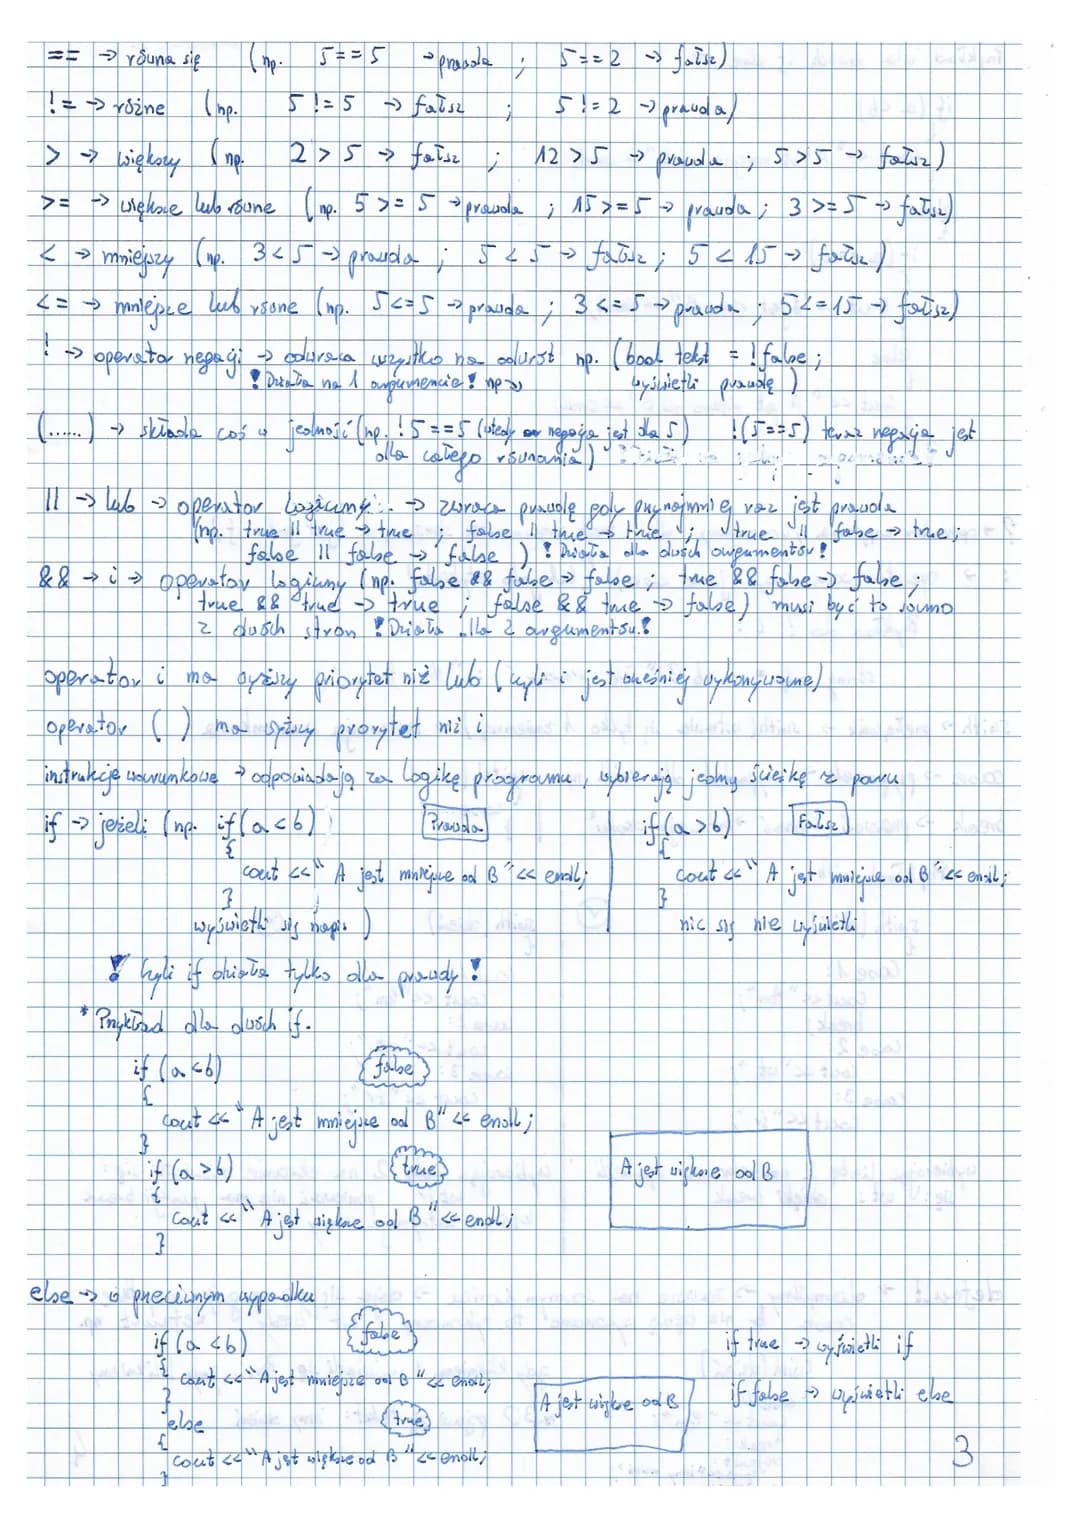 == → równa się (np. 5==5 → prawda ; 5==2 → fałsz)
!= → różne (np. 5!=5 → fałsz ; 5!=2 → prawda)
> → większy (np. 2>5 → fałsz ; 12>5 → prawda ; 5>5 → fałsz)
>= → większe lub równe (np. 5>=5 → prawda ; 15>=5 → prawda ; 3>=5 → fałsz)
< → mniejszy (np. 3<5 → prawda ; 5<5 → fałsz ; 5<15 → fałsz)
<= → mniejsze lub równe (np. 5<=5 → prawda ; 3<=5 → prawda ; 5<=15 → fałsz)
! → operator negacji → odwraca wszystko na odwrót np. (bool tekst = !false;
! Działa na 1 argumencie! np → wyświetli prawdę )
(......) → składa coś w jedność (np. !5==5 (wtedy negacja jest dla 5) !(5==5) teraz negacja jest
dla całego równania)
|| → lub → operator logiczny → zwraca prawdę gdy przynajmniej raz jest prawda
(np. true || true → true ; false || true → true ; true || false → true ;
false || false → false ) ! Działa dla dwóch argumentów!
&& → i → operator logiczny (np. false && false → false ; true && false → false ;
true && true → true ; false && true → false) musi być to samo
z dwóch stron ! Działa dla 2 argumentów!
operator i ma wyższy priorytet niż lub (czyli i jest wcześniej wykonywane)
operator ( ) ma wyższy prorytet niż i
instrukcje warunkowe → odpowiadają za logikę programu, wybierają jedną ścieżkę z paru
if → jeżeli (np. if(a<b) Prawda if(a>b) Fałsz
{ {
cout <<" A jest mniejsze od B "<< endl; cout <<" A jest mniejsze od B "<< endl;
} }
wyświetli się napis ) nic się nie wyświetli
! Czyli if działa tylko dla prawdy !
* Przykład dla dwóch if.
if (a<b) false
{
cout << " A jest mniejsze od B" << endl;
}
if (a>b) true
{ A jest większe od B
cout << " A jest większe od B "<< endl;
}
else → w przeciwnym wypadku
if (a<b) false if true → wyświetli if
{ cout <<" A jest mniejsze od B "<< endl;
} A jest większe od B if false → wyświetli else
else true
{
cout <<" A jest większe od B "<< endl; 3
}